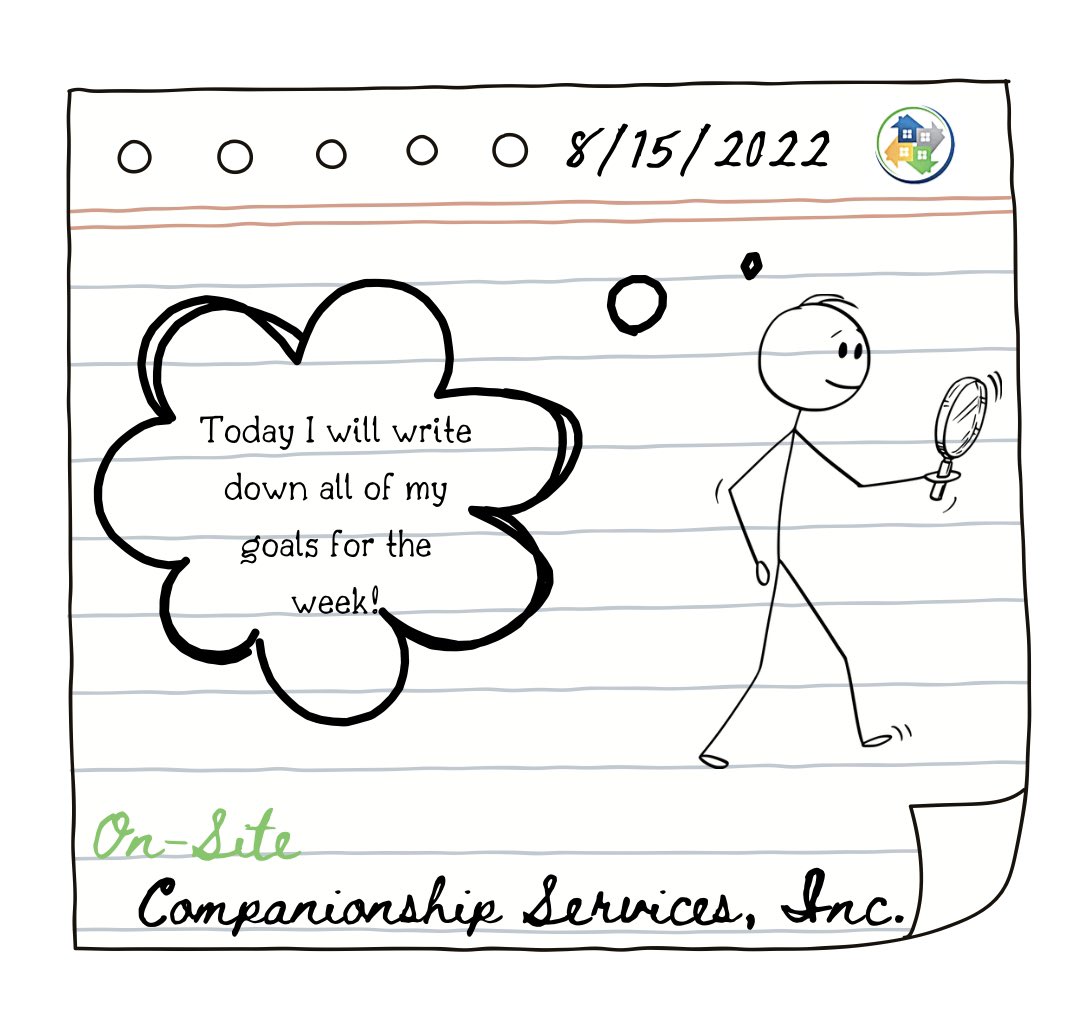 8/15/2022
Today I will write
down all of my
goals for the
week!
On-Site
Companionship Services, Inc.